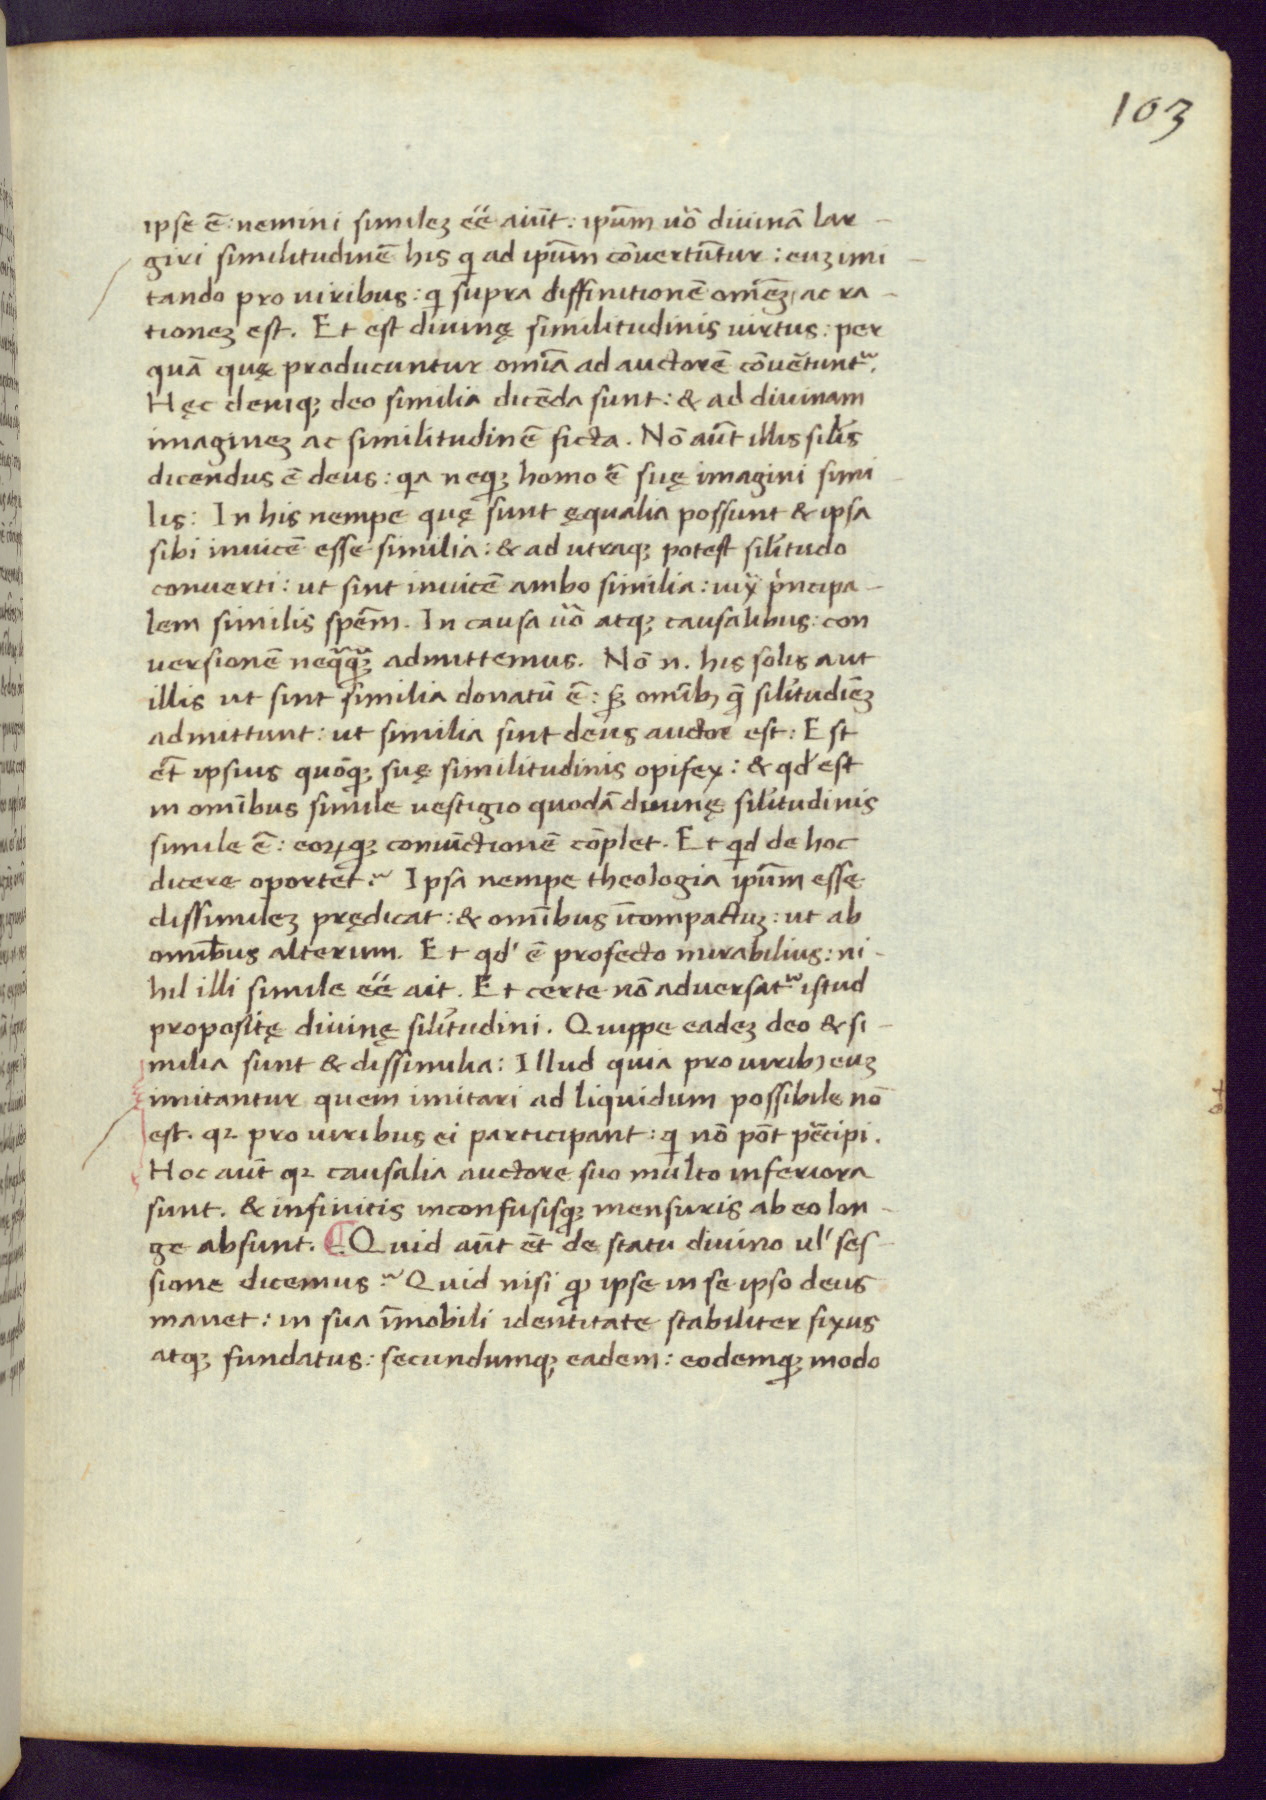 103
ipse ē: nemini similez eḗ aiūt: ipūm uō divinā lar-
giri similitudinē his q ad ipūm cōvertūtur: euz imi-
tando pro viribus: q supra diffinitionē omēz ac ra-
tionez est. Et est divinę similitudinis virtus: per
quā quę producuntur omīa ad auctorē cōvētunt᷑.
Hęc deniqꝫ deo similia dicēda sunt: & ad divinam
imaginez ac similitudinē ficta. Nō aūt illis silīs
dicendus ē deus: qa neqꝫ homo ē suę imagini simi-
lis: In his nempe quę sunt ęqualia possunt & ipsa
sibi invicē esse similia: & ad utraqꝫ potest silītudo
converti: ut sint invicē ambo similia: iux p̄ncipa-
lem similis spēm. In causa uō atqꝫ causalibus: con
versionē neq̄q̄ꝫ admittemus. Nō n. his solis aut
illis ut sint similia donatū ē: sꝫ omībꝫ q̄ silītudiēz
admittunt: ut similia sint deus auctor est: Est
et̄ ipsius quōqꝫ suę similitudinis opifex: & qd' est
in omībus simile vestigio quodā divinę silītudinis
simile ē: eoꝝqꝫ coniūctionē cōplet. Et qd de hoc
dicere oportet? Ipsa nempe theologia ipūm esse
dissimilez prędicat: & omībus īcompactuz: ut ab
omībus alterum. Et qd' ē profecto mirabilius: ni-
hil illi simile eḗ ait. Et certe nō adversat᷑ istud
propositę divinę silītudini. Quippe eadez deo & si-
milia sunt & dissimilia: Illud quia pro viribꝫ euz
imitantur quem imitari ad liquidum possibile nō
est. qꝛ pro viribus ei participant: q nō pōt p̄cipi.
Hoc aūt qꝛ causalia auctore suo multo inferiora
sunt. & infinitis inconfusisqꝫ mensuris ab eo lon-
ge absunt. ¶ Quid aūt et̄ de statu divino ul' ses-
sione dicemus? Quid nisi qꝫ ipse in se ipso deus
manet: in sua īmobili identitate stabiliter fixus
atqꝫ fundatus: secundumqꝫ eadem: eodemqꝫ modo